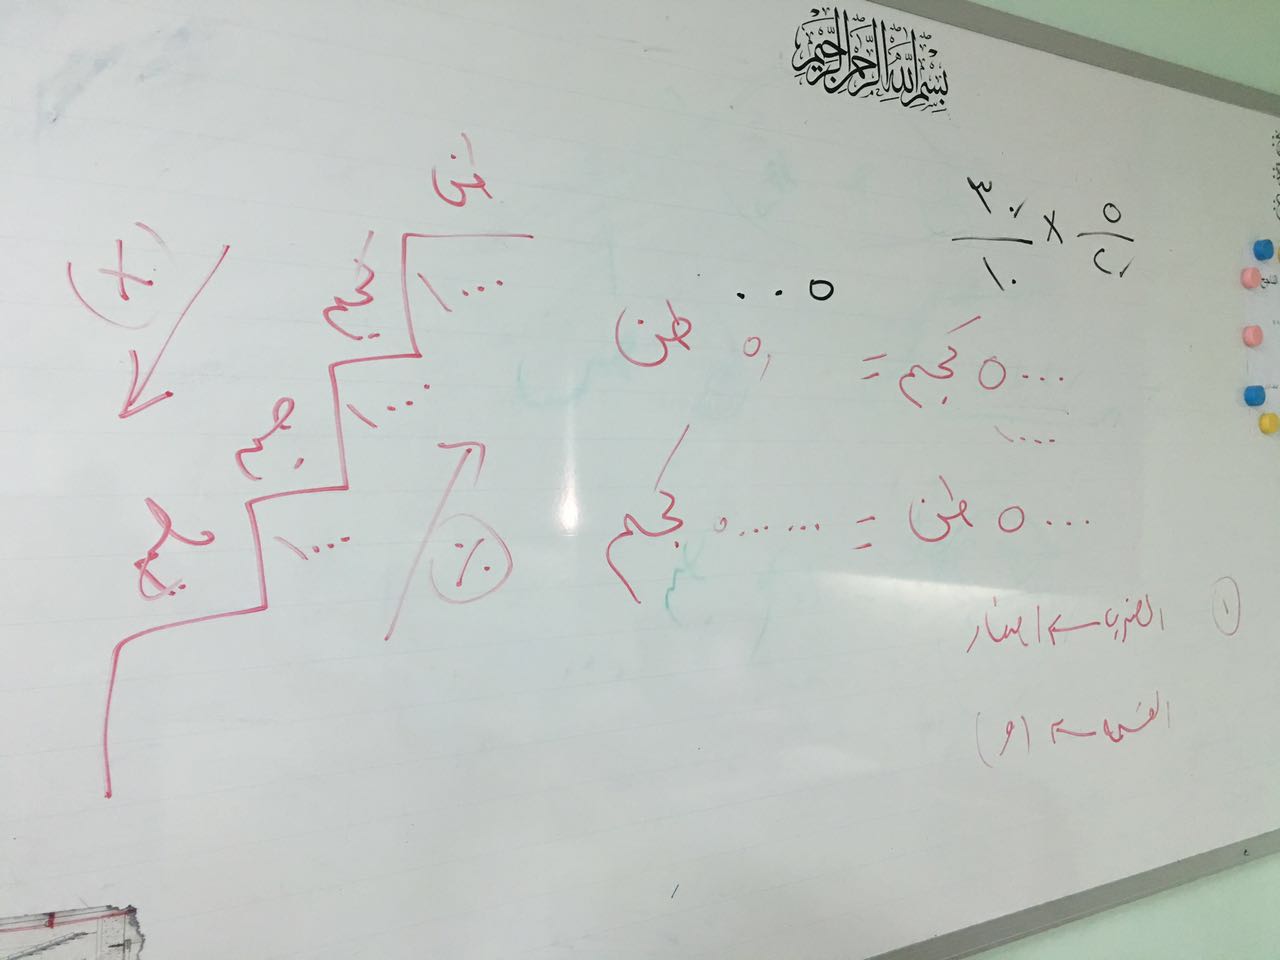 بسم الله الرحمن الرحيم
٥/٢ × ٣٠/١٠
٥٠٠
٥٠٠٠ كجم = ٥ طن
١٠٠٠
٥٠٠٠ طن = ٥٠٠٠٠٠٠ كجم
١
الضرب أصفار
القسمة (و)
طن
كجم
١٠٠٠
جم
١٠٠٠
ملجم
١٠٠٠
×
٪